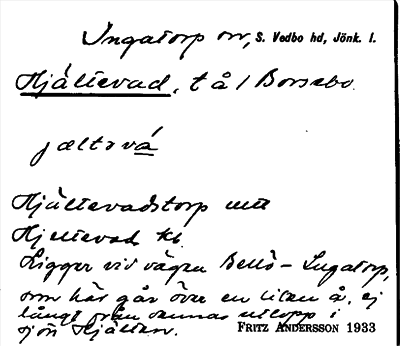 Ingatorp sn, S. Vedbo hd, Jönk. l.
Hjältevad, t å / Borsebo
jæltəvá
Hjältevadstorp
Hjeltevad kb.
Ligger vid vägen Bellö – Ingatorp,
som här går över en liten å, ej
långt från dennas utlopp i
sjön Hjälten.
FRITZ ANDERSSON 1933